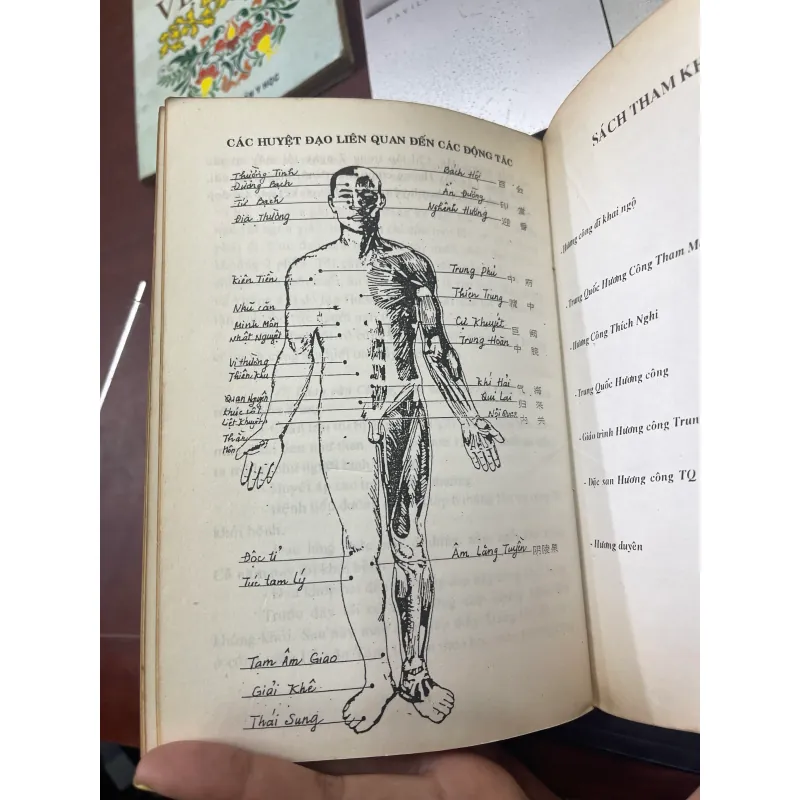 CÁC HUYỆT ĐẠO LIÊN QUAN ĐẾN CÁC ĐỘNG TÁC
Thường Tinh
Dương Bạch
Tứ Bạch
Địa Thương
Bách Hội 百 合
Ấn Đường 印 堂
Nghinh Hương 迎 香
Kiên Tiền
Nhũ căn
Minh Môn
Nhật Nguyệt
Vị thường
Thiên Khu
Quan Nguyên
Liệt Khuyết
Thần
Môn
Trung Phủ 中 府
Thiện Trung 中
Cự Khuyết 巨 阙
Trung Hoãn 中 脘
Khí Hải 气 海
Qui Lai 归 来
Nội Quan 内 关
Độc tỉ
Túc tam lý
Âm Lăng Tuyền 阴陵泉
Tam Âm Giao
Giải Khê
Thái Sung
SÁCH THAM
- Hương công dĩ khai ngộ
- Trung Quốc Hương Công Tham
- Hương Công Thích Nghi
- Trung Quốc Hương công
- Giáo trình Hương công
- Độc san Hương công TQ
- Hương duyên